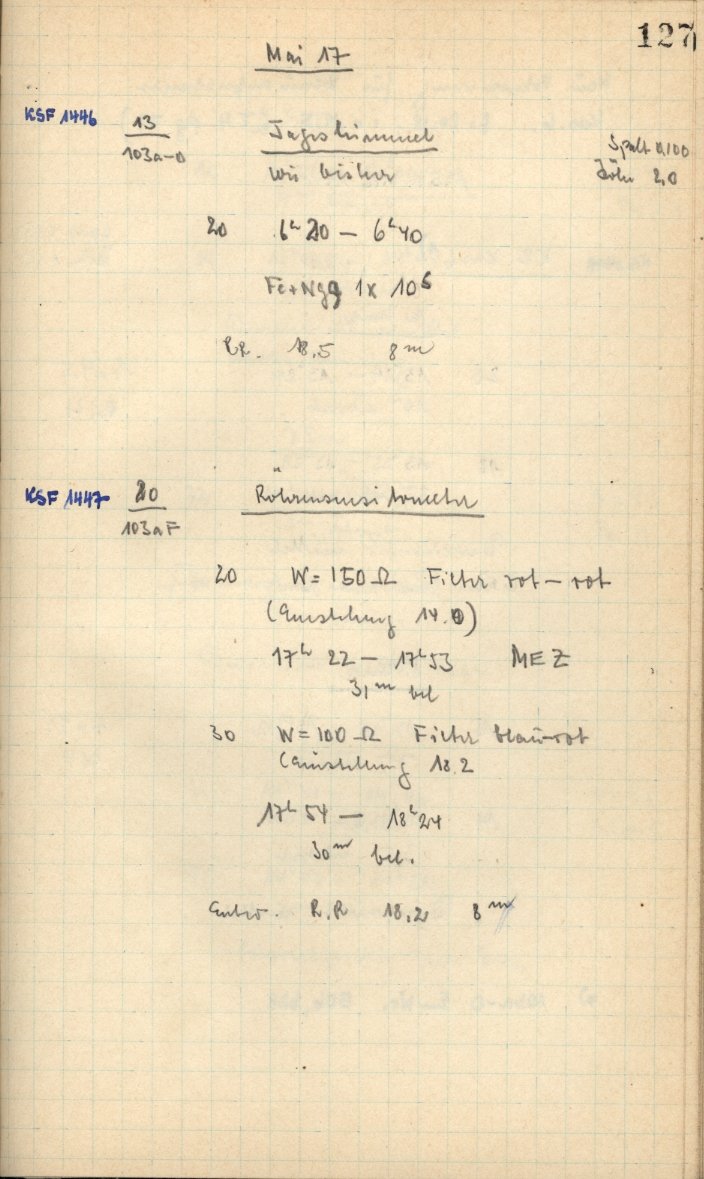 127
Mai 17
KSF 1446
13
103a-O
Tageshimmel
wie bisher
Spalt 0,100
Höhe 2,0
20 6h 20 — 6h 40
Fe+Ng 1x 10s
R.R. 18,5 8m
KSF 1447
20
103aF
Röhrensensitometer
20 W = 150 Ω Filter rot — rot
(Einstellung 14.0)
17h 22 — 17h 53 MEZ
31m bel
30 W = 100 Ω Filter blau-rot
(Einstellung 18.2
17h 54 — 18h 24
30m bel.
Entw. R.R 18,2 8m